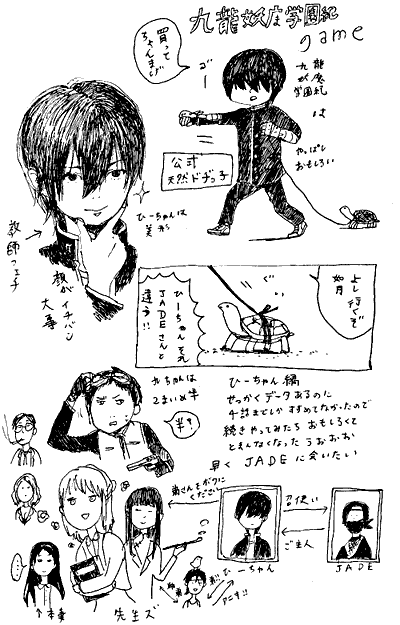 九龍妖魔学園紀
game
買って
ちゃんまげ
ごー
九龍妖魔
学園紀
は
やっぱし
おもしろい
公式
天然ドヂっ子
ひーちゃんは
美形
教師フェチ
顔がイチバン
大事
よし行くぞ
如月
ぐい
ひーちゃんそれ
JADEさんと
違う!!
九ちゃんは
2まいめ半
半?
ひーちゃん編
せっかくデータあるのに
4話までしかすすめてなかったので
続きやってみたらおもしろくて
とまんなくなったうおおお
早く JADEに会いたい
弟さんをボクに
ください
ひーちゃん
召使い
ご主人
JADE
師弟
アニキ!!
…
↑本妻
先生ズ